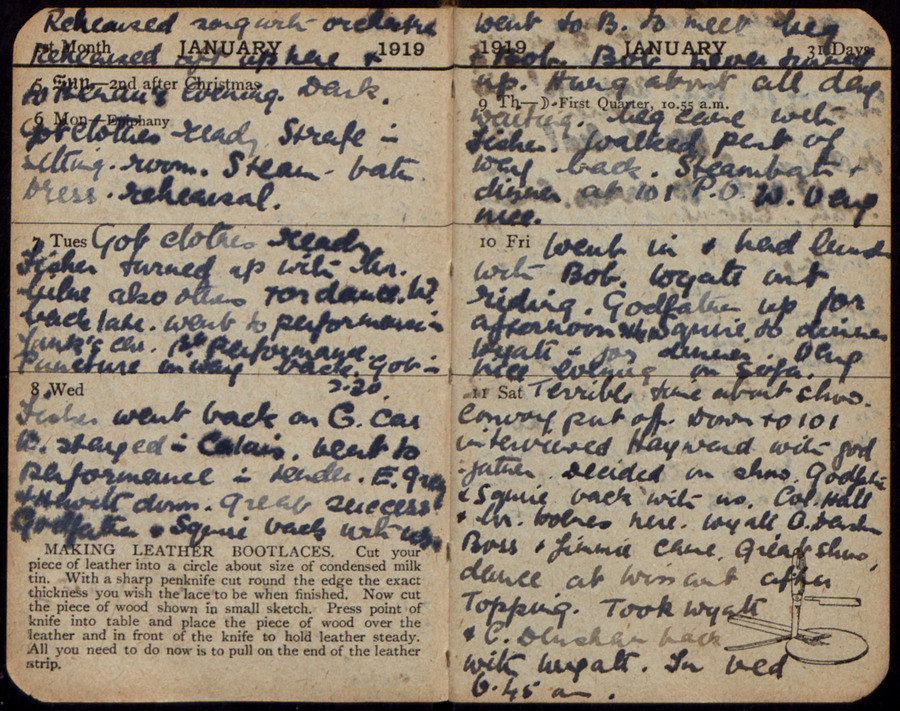 Rehearsed song with orchestra
1st Month JANUARY 1919
Rehearsed up here &
5 Sun—2nd after Christmas
evening. Dark.
6 Mon—Epiphany
Got clothes ready. Strafe in
sitting-room. Steam-bath.
Dress-rehearsal.
7 Tues Got clothes ready
Fisher turned up with
also others for dance.
back late. went to performance in
car. 1st performance.
Puncture in way back. Got in
2.20
8 Wed
Fisher went back on G. car
stayed in Calais. went to
performance in tender. E. Grey
down. Great success
Godfather & Squire back with us.
MAKING LEATHER BOOTLACES. Cut your
piece of leather into a circle about size of condensed milk
tin. With a sharp penknife cut round the edge the exact
thickness you wish the lace to be when finished. Now cut
the piece of wood shown in small sketch. Press point of
knife into table and place the piece of wood over the
leather and in front of the knife to hold leather steady.
All you need to do now is to pull on the end of the leather
strip.
went to B. to meet Meg
1919 JANUARY 31 Days
& Bob. Bob never turned
up. Hung about all day
9 Th—☽-First Quarter, 10.55 a.m.
waiting. Meg came with
Fisher. walked part of
way back. Steambath &
dinner at 101 P.O.W. Very
nice.
10 Fri Went in & had lunch
with Bob. Wyatt out
riding. Godfather up for
afternoon Squire to dinner
Wyatt & for dinner. Very
nice evening on sofa.
11 Sat Terrible time about show.
Convoy put off. Down to 101
interviewed Hayward with god
-father. Decided on show. Godfather
& Squire back with us. Col. Hall
& here. Wyatt
Boss & Jimmie came. Great show,
dance at Wissant after
Topping. Took Wyatt
& C. back
with Wyatt. In bed
6.45 am.